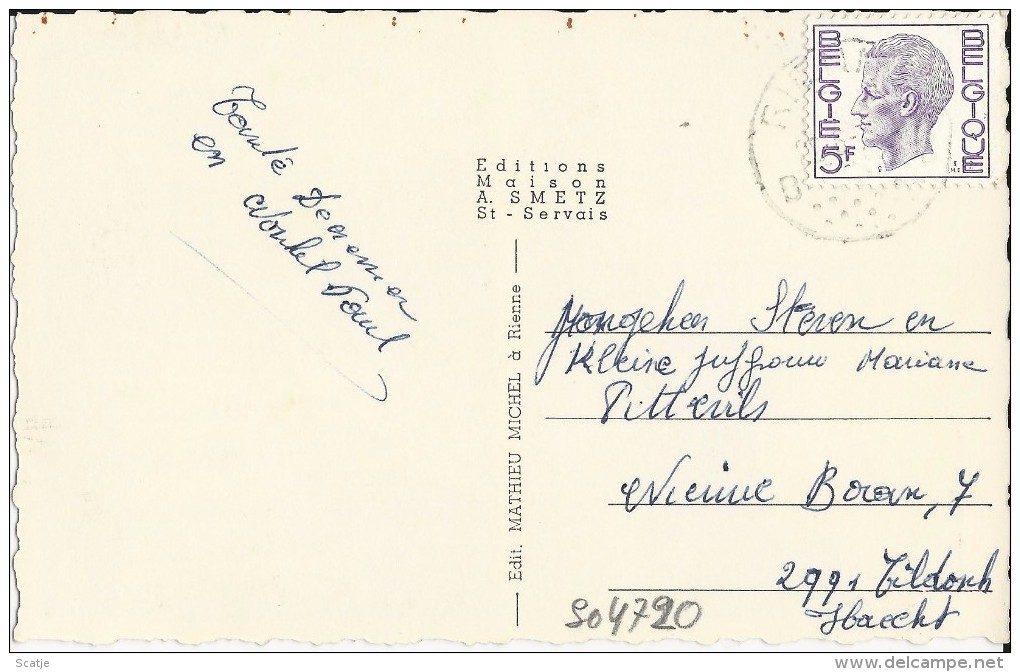 Tante Deeremer
en Nonkel Paul
Editions
Maison
A. SMETZ
St - Servais
Edit. MATHIEU MICHEL à Rienne
BELGIE 5F BELGIQUE
Jongeheer Steven en
Kleine juffrouw Mariane
Pittevils
Nieuwe Baan, 7
2991 Tildonk
Haecht
So4720
Scatje
delcampe.net